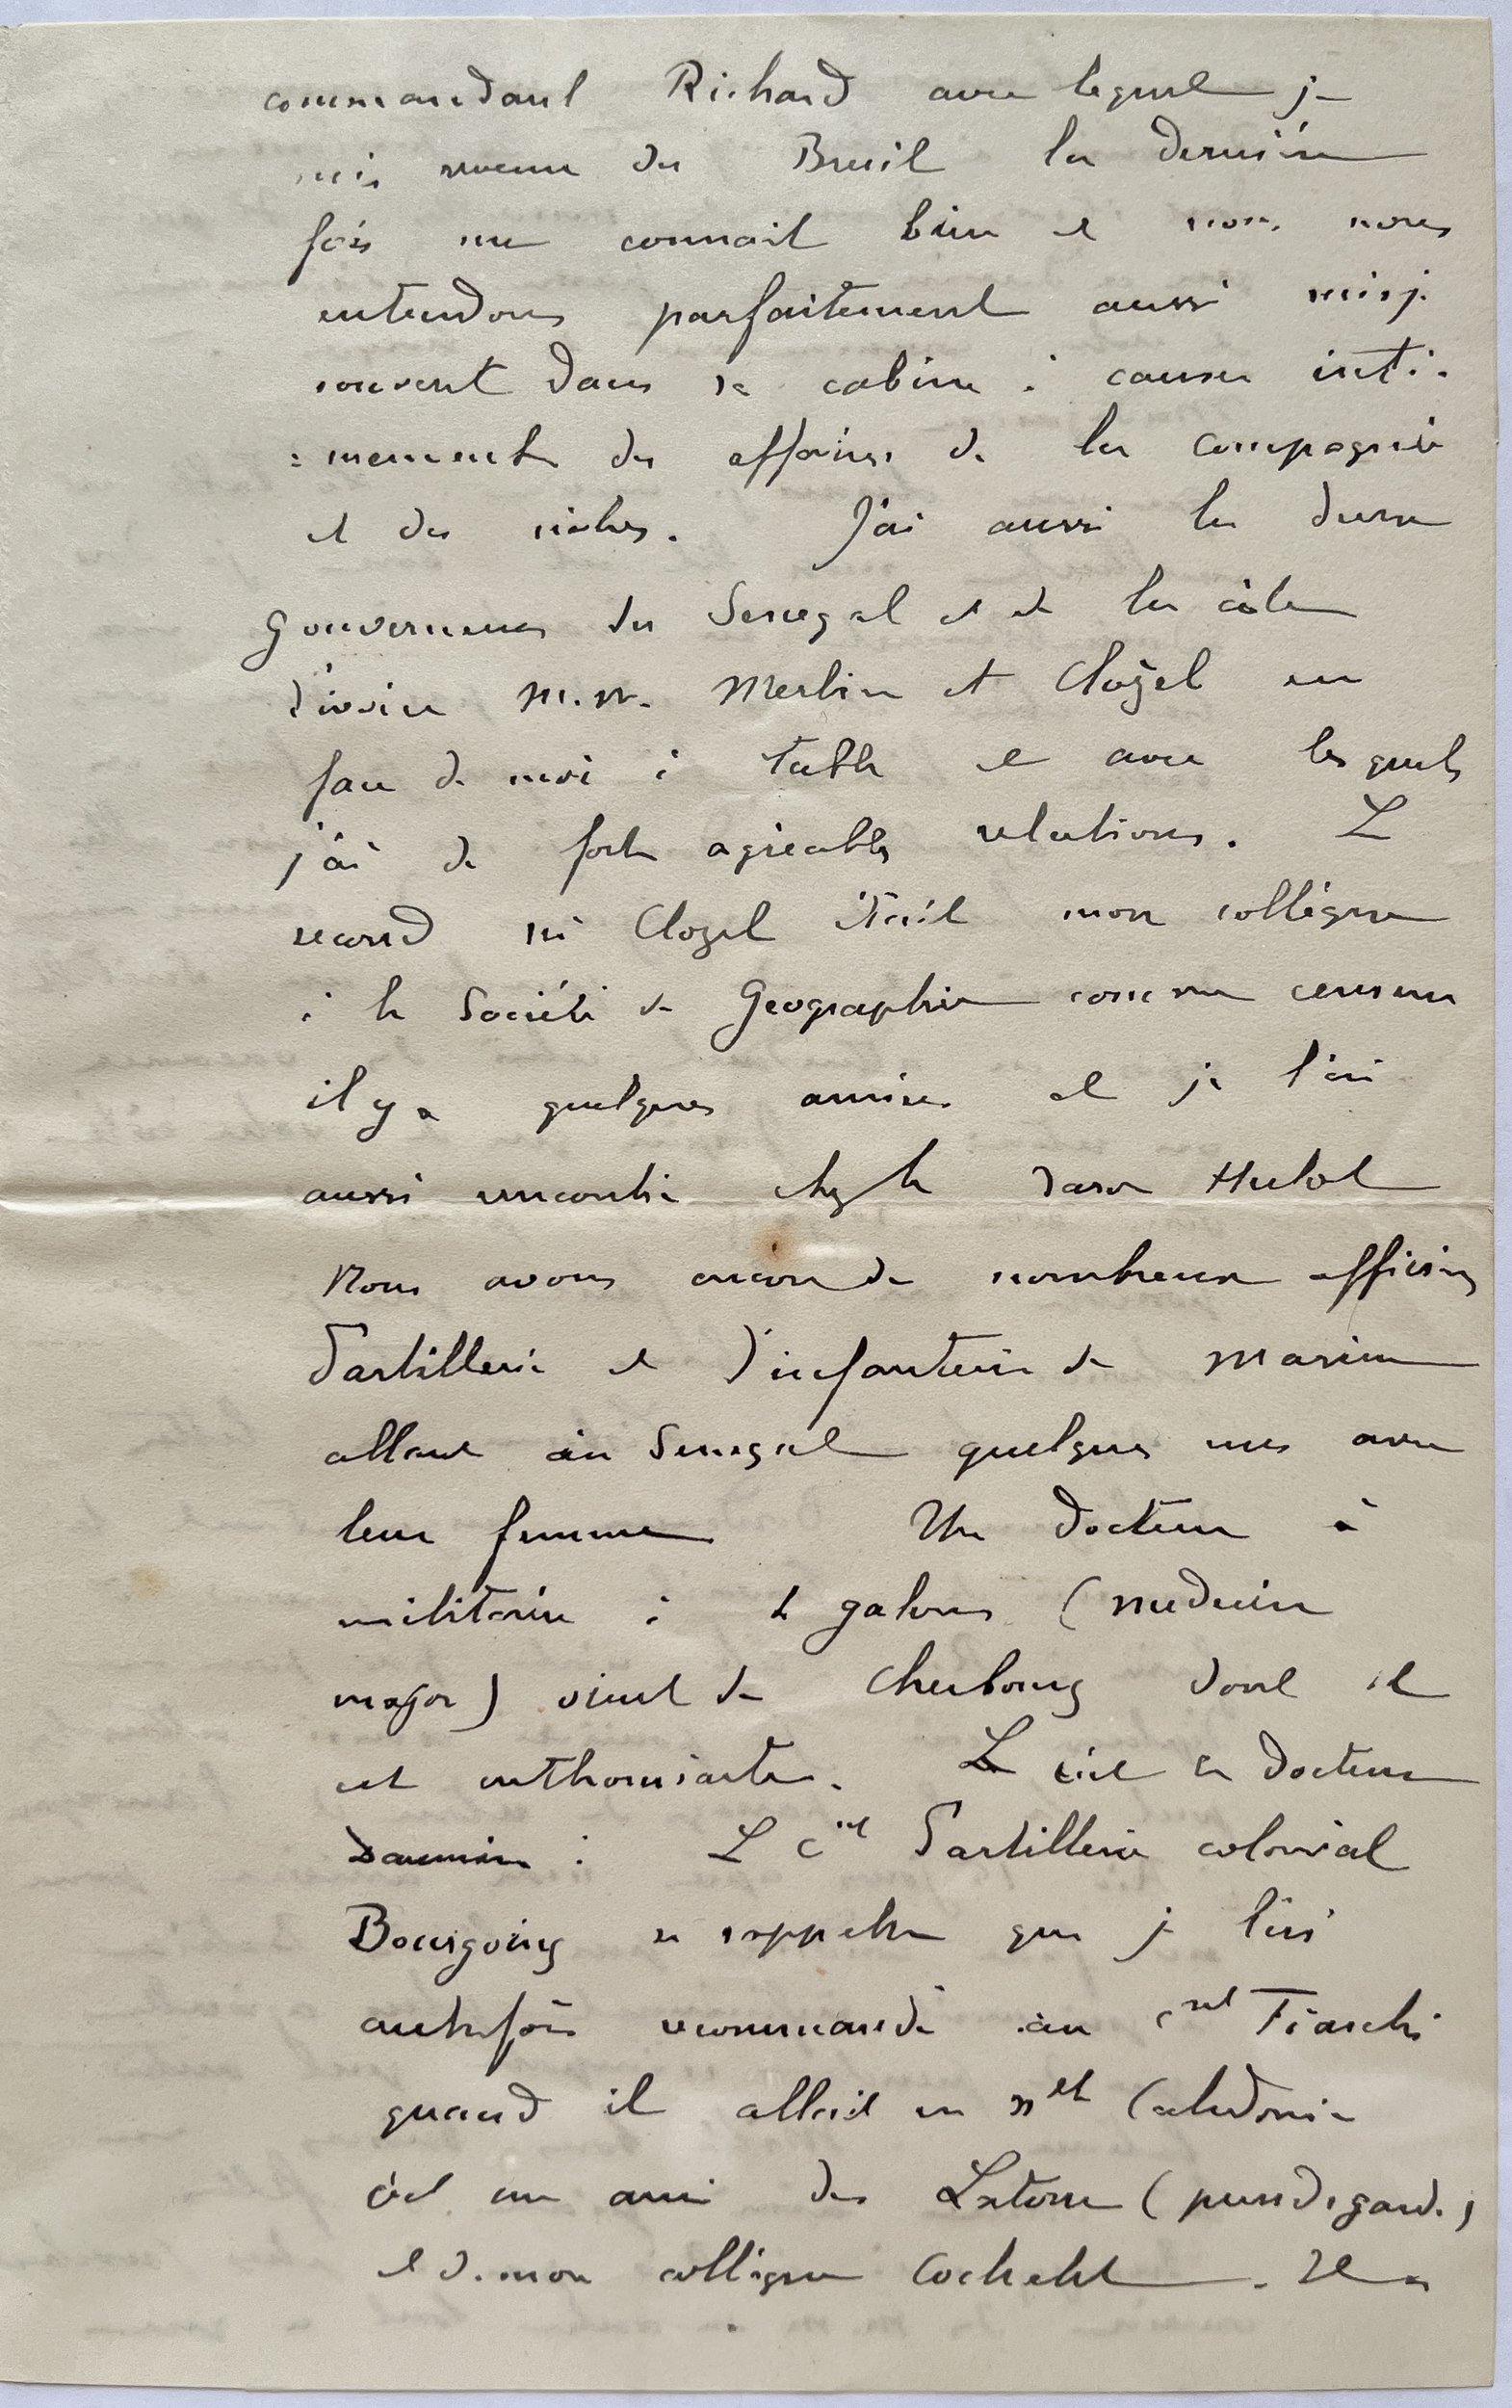 commandant Richard avec lequel je
suis revenu du Bresil la dernière
fois me connait bien et nous nous
entendons parfaitement aussi suis je
souvent dans sa cabine à causer inti-
=mement des affaires de la compagnie
et des notres. J'ai aussi les deux
gouverneurs du Senegal et de la côte
d'ivoire M.M. Merlin et Clozel en
face de moi à table et avec lesquels
j'ai de forts agréables relations. Le
second Mr Clozel était mon collègue
à la Société de Geographie comme censeur
il y a quelques années et je l'ai
aussi rencontré chez le baron Hulot
Nous avons encore de nombreux officiers
d'artillerie et d'infanterie de marine
allant au Senegal quelques uns avec
leur femme Un docteur à
militaire à 4 galons (medecin
major) vient de Cherbourg dont il
est enthousiaste. Le c'est le docteur
L Cnel d'artillerie colonial
Bourgoing se rappelle que je l'ai
autrefois recommandé au Cnel Fiaschi
quand il allait en Nlle Caledonie
c'est un ami des Latour
et de mon collègue Cochelet. Il a